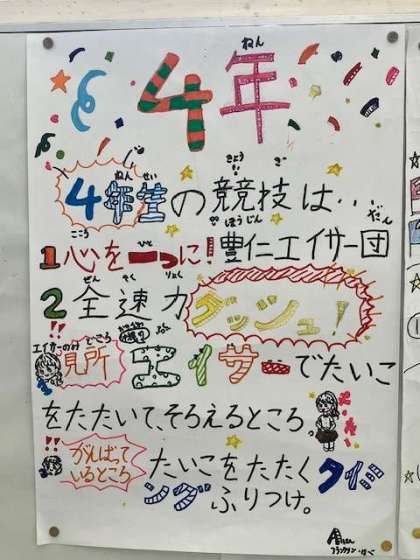 ねん
4年
ねん せい
4年生の競技は・・
きょう ぎ
こころ ひと ほうじん だん
1心を一つに!豊仁エイサー団
ぜん そく りょく
2全速力ダッシュ!
エイサーのみ どころ
!!見所 エイサーでたいこ
をたたいて、そろえるところ。
!!がんばっているところ たいこをたたくタイミング ふりつけ。